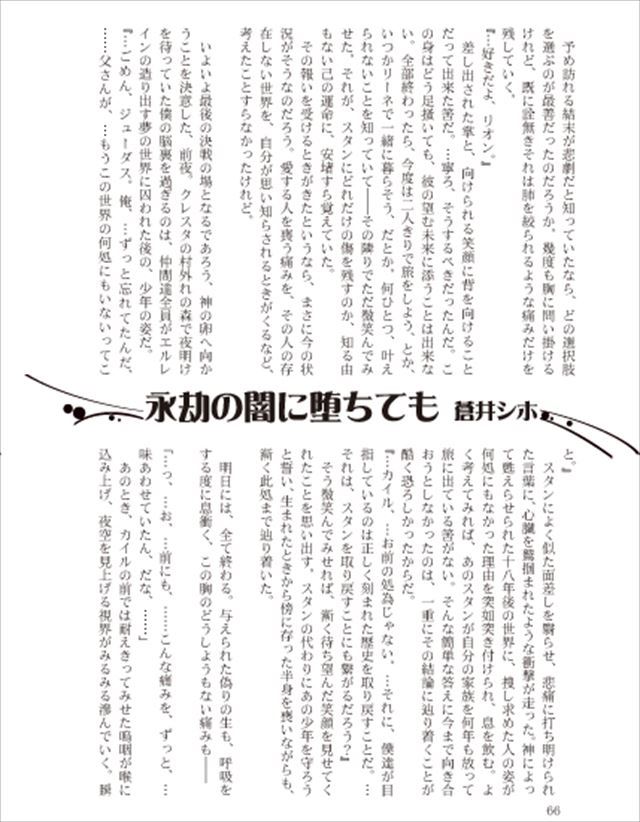 予め訪れる結末が悲劇だと知っていたなら、どの選択肢
を選ぶのが最善だったのだろうか。幾度も胸に問い掛ける
けれど、既に詮無きそれは肺を絞られるような痛みだけを
残していく。
『…好きだよ、リオン。』
差し出された掌と、向けられる笑顔に背を向けること
だって出来た筈だ。…寧ろ、そうするべきだったんだ。こ
の身はどう足掻いても、彼の望む未来に添うことは出来な
い。全部終わったら、今度は二人きりで旅をしよう、とか、
いつかリーネで一緒に暮らそう、だとか。何ひとつ、叶え
られないことを知っていて――その隣りでただ微笑んでみ
せた。それが、スタンにどれだけの傷を残すのか、知る由
もない己の運命に、安堵すら覚えていた。
その報いを受けるときがきたというなら、まさに今の状
況がそうなのだろう。愛する人を喪う痛みを、その人の存
在しない世界を、自分が思い知らされるときがくるなど、
考えたことすらなかったけれど。
いよいよ最後の決戦の場となるであろう、神の卵へ向か
うことを決意した、前夜。クレスタの村外れの森で夜明け
を待っていた僕の脳裏を過ぎるのは、仲間達全員がエルレ
インの造り出す夢の世界に囚われた後の、少年の姿だ。
『…ごめん、ジューダス。俺、…ずっと忘れてたんだ、
……父さんが、…もうこの世界の何処にもいないってこ
永劫の闇に堕ちても 蒼井シホ
と。』
スタンによく似た面差しを翳らせ、悲痛に打ち明けられ
た言葉に、心臓を鷲掴まれたような衝撃が走った。神によっ
て甦らせられた十八年後の世界に、捜し求めた人の姿が
何処にもなかった理由を突如突き付けられ、息を飲む。よ
く考えてみれば、あのスタンが自分の家族を何年も放って
旅に出ている筈がない。そんな簡単な答えに今まで向き合
おうとしなかったのは、一重にその結論に辿り着くことが
酷く恐ろしかったからだ。
『…カイル。…お前の処為じゃない。…それに、僕達が目
指しているのは正しく刻まれた歴史を取り戻すことだ。…
それは、スタンを取り戻すことにも繋がるだろう？』
そう微笑んでみせれば、漸く待ち望んだ笑顔を見せてく
れたことを思い出す。スタンの代わりにあの少年を守ろう
と誓い、生まれたときから傍に存った半身を喪いながらも、
漸く此処まで辿り着いた。
明日には、全て終わる。与えられた偽りの生も、呼吸を
する度に息衝く、この胸のどうしようもない痛みも――
「…っ、…お、…前にも、……こんな痛みを、ずっと、…
味あわせていたん、だな、……」
あのとき、カイルの前では耐えきってみせた嗚咽が喉に
込み上げ、夜空を見上げる視界がみるみる滲んでいく。瞬
66